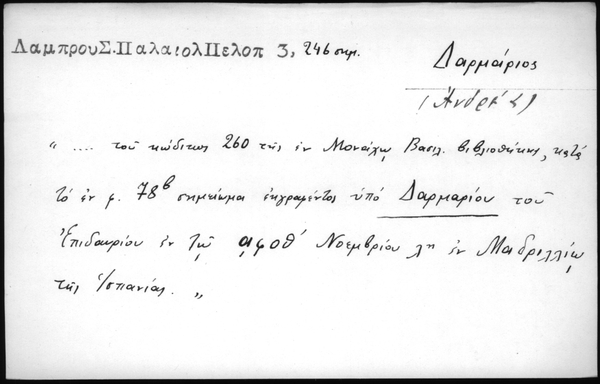 ΛαμπρουΣ.ΠαλαιολΠελοπ 3, 246 σημ.
Δαρμάριος
(Ἀνδρέας)
" .... τοῦ κώδικος 260 τῆς ἐν Μονάχῳ Βασιλ. βιβλιοθήκης, κατὰ
τὸ ἐν φ. 78β σημείωμα ἐκγραφέντος ὑπὸ Δαρμαρίου τοῦ
Ἐπιδαυρίου ἐν τῷ ͵αφοθ´ Νοεμβρίου λῃ ἐν Μαδριλλίῳ
τῆς Ἱσπανίας. "